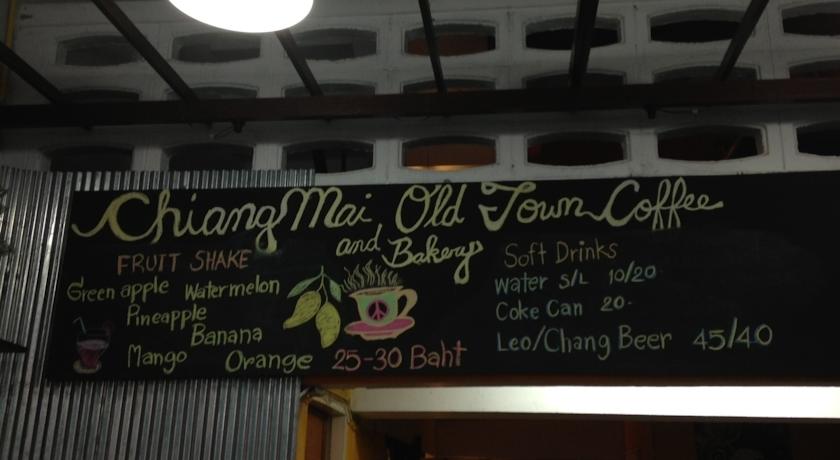 Chiang Mai Old Town Coffee
and Bakery
FRUIT SHAKE
Green apple Watermelon
Pineapple
Banana
Mango Orange 25-30 Baht
Soft Drinks
Water S/L 10/20.
Coke Can 20.
Leo/Chang Beer 45/40